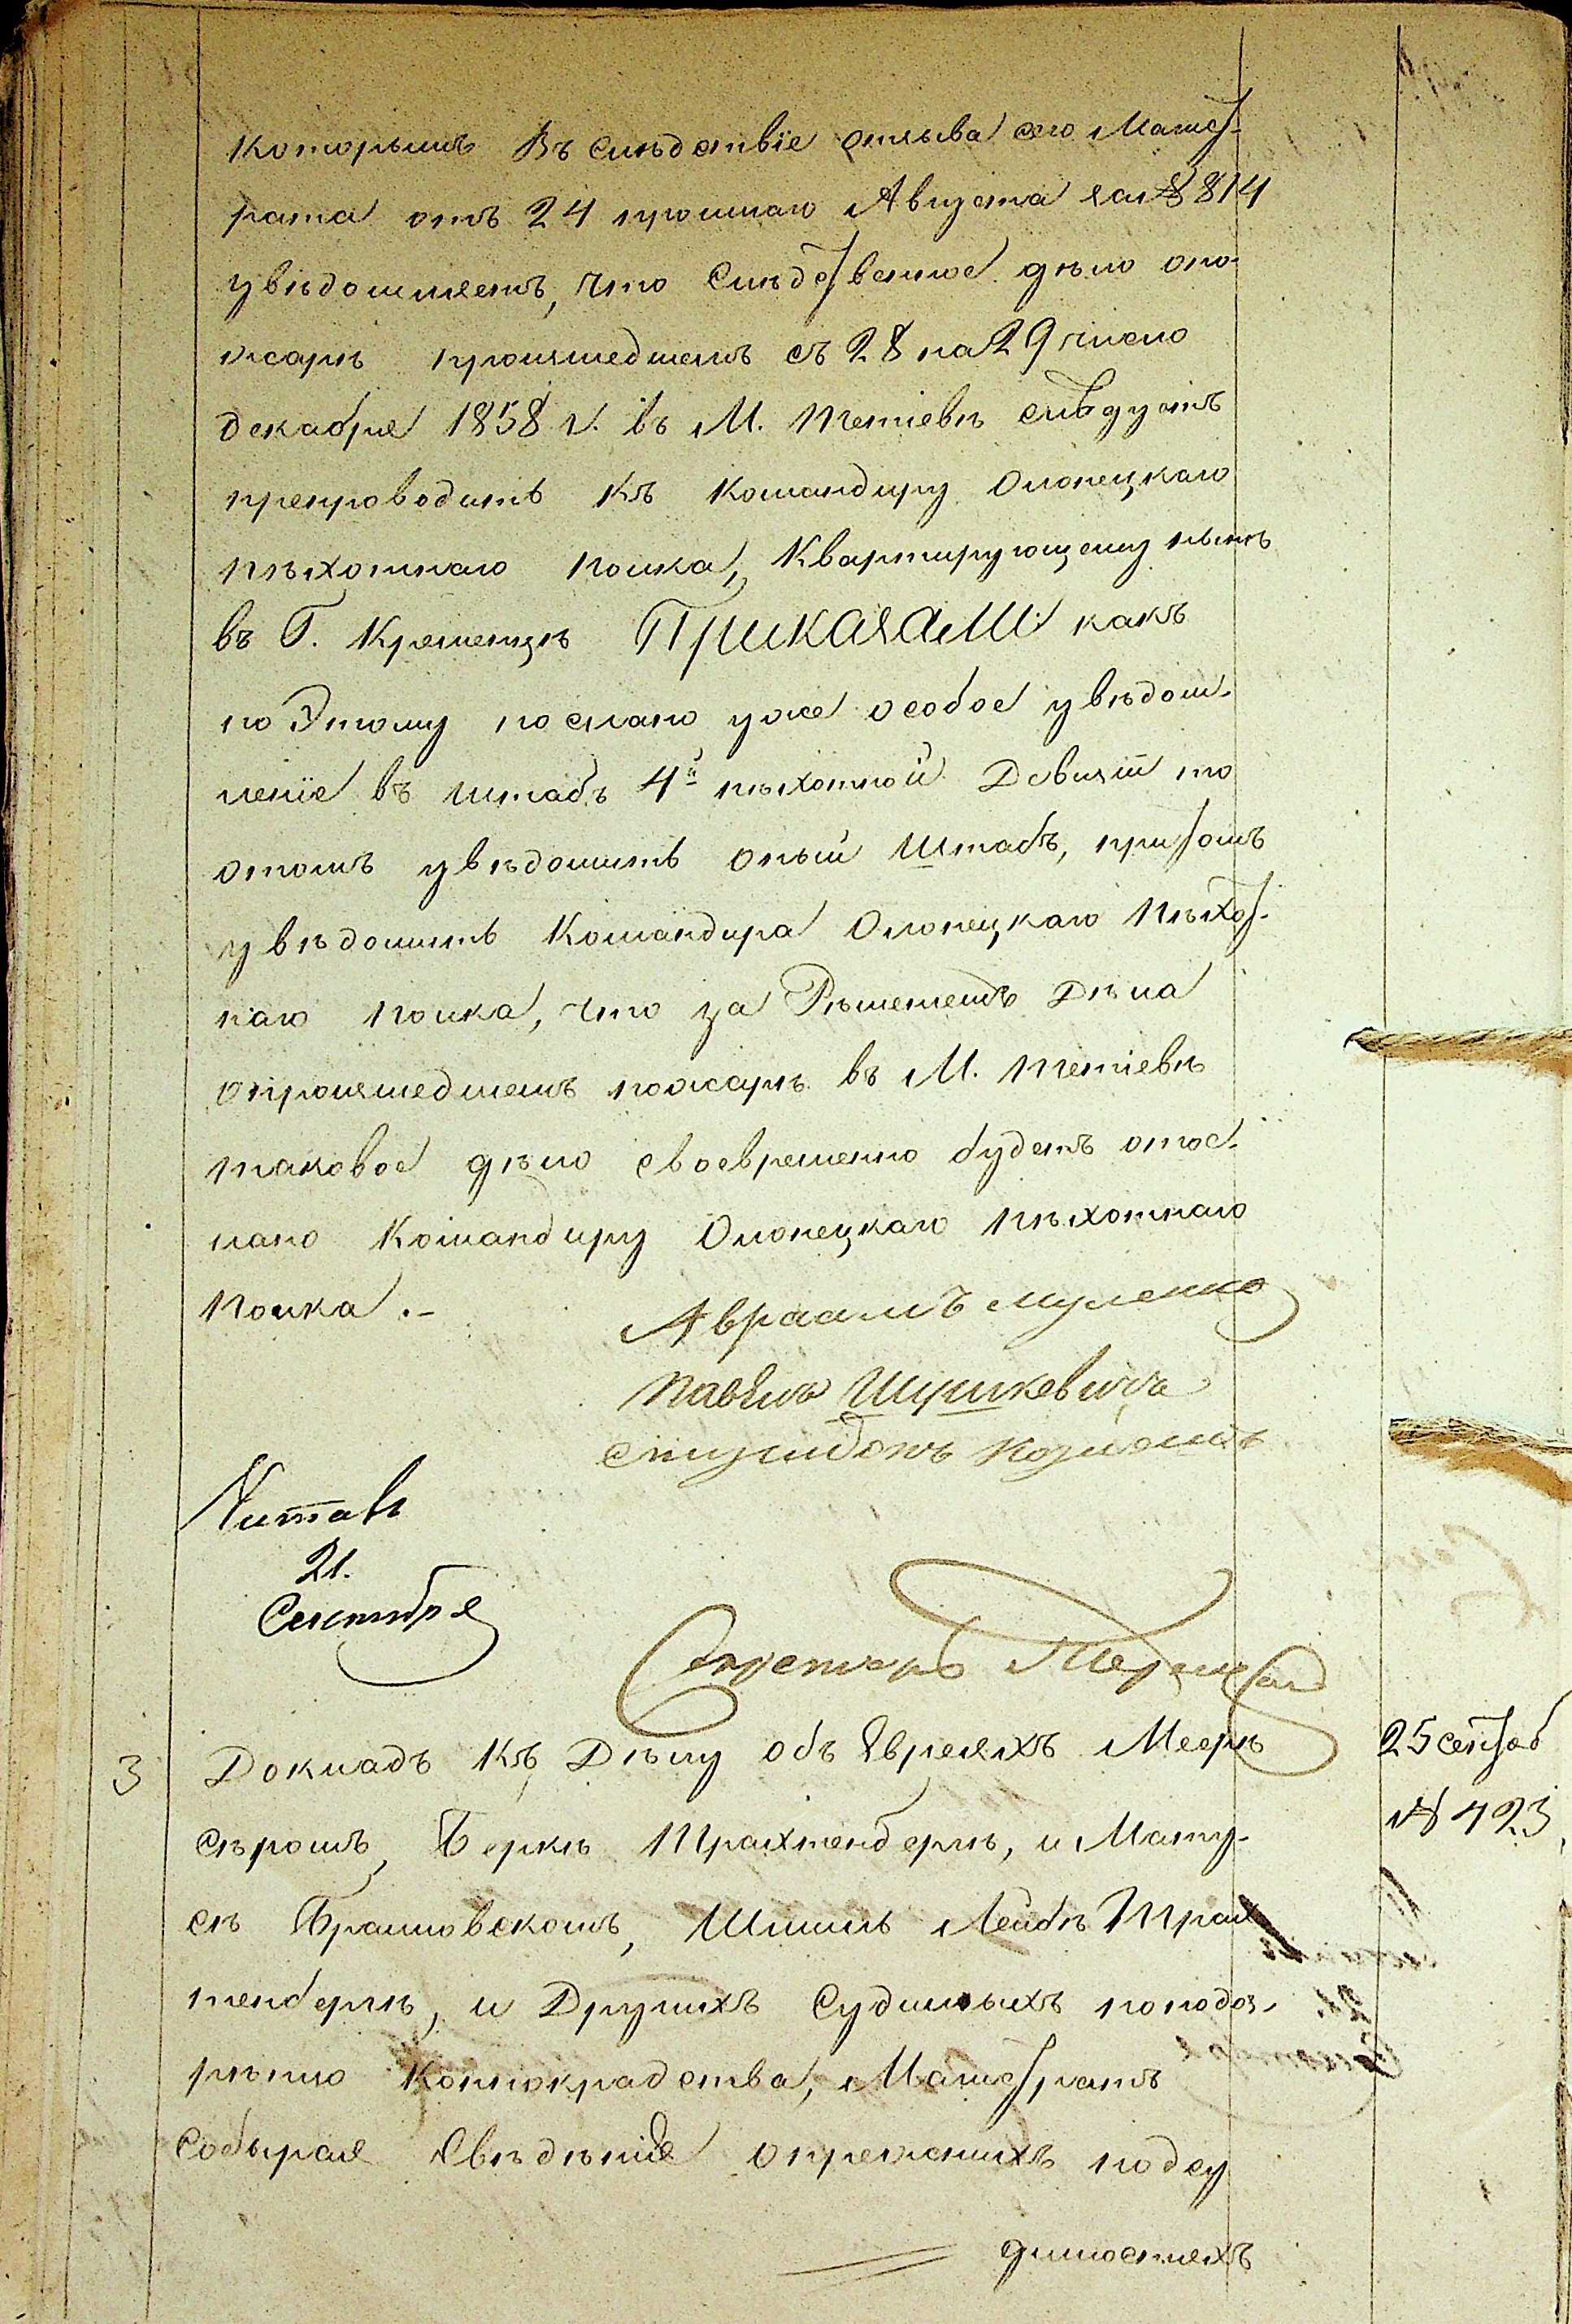 которымъ въ слѣдствіе отзыва сего Магист-
рата отъ 24 прошлаго Августа за № 814
увѣдомляетъ, что слѣдственное дѣло опо-
жарѣ произшедшемъ съ 28 на 29 число
декабря 1858 г. въ М. Тетіевѣ слѣдуетъ
препроводить къ командиру Олонецкаго
пѣхотнаго полка, Квартирующему нынѣ
въ Г. Кременцѣ Приказали: какъ
по Этому послано уже особое увѣдом-
леніе въ штабъ 4й пѣхотной Дивизіи то
отомъ увѣдомить оный Штабъ, притомъ
увѣдомить Командира Олонецкаго Пѣхот-
наго полка, что за Рѣшенемъ Дѣла
опроизшедшемъ пожарѣ въ М. Тетіевѣ
таковое дѣло своевременно будетъ отос-
лано Командиру Олонецкаго пѣхотнаго
полка.-
Авраамъ
Павелъ
Читалъ
21.
Сентября
Секретарь
3 Докладъ Къ Дѣлу объ Евреяхъ Меерѣ
25 сентяб
Сѣромъ, Беркѣ Трахтенбергѣ, и Мату-
№ 423
сѣ Браиловскомъ, Шмилѣ Лейбѣ Трах
тенбергѣ, и Другихъ Судимыхъ поподоз-
рѣнію Конокрадства, Магистратъ
Собирая Свѣдѣніе опрежнихъ подсу
димостяхъ